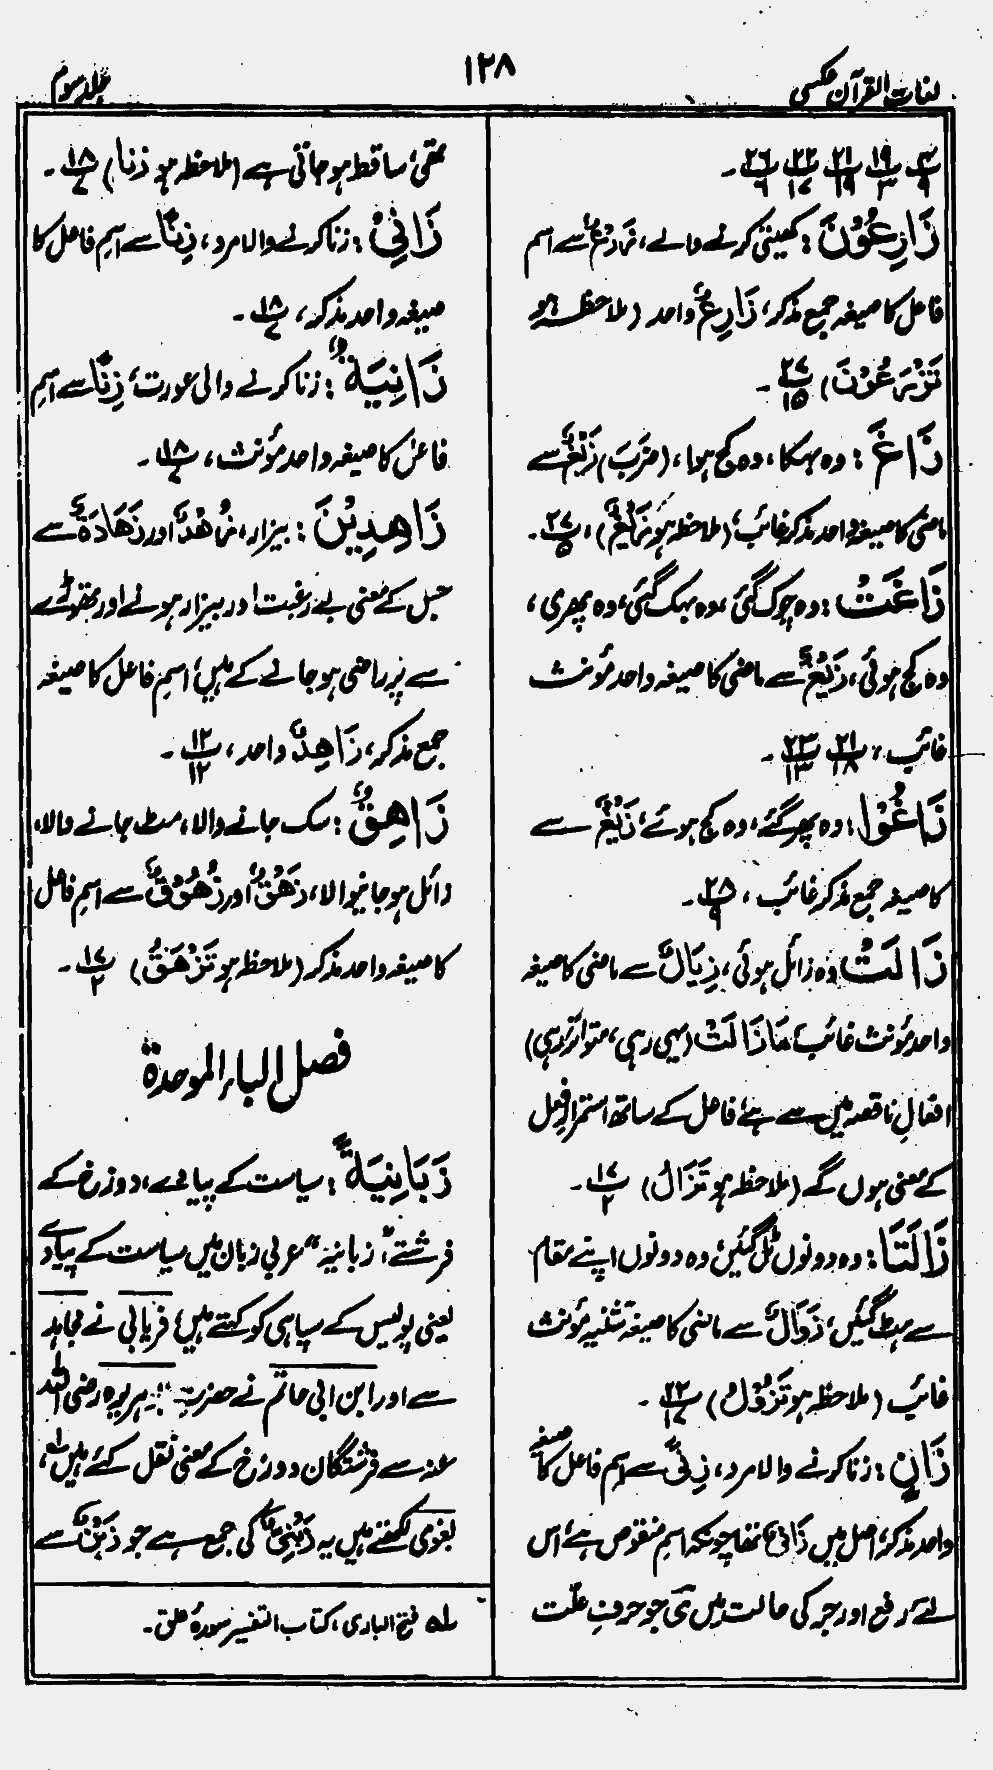 لغات القرآن عکسی
۱۲۸
جلد سوم
۲/۹ ۱۹/۳ ۲۱/۱۹ ۲۲/۱۷ ۲۶/۶ ۔
زَارِعُوْنَ : کھیتی کرنے والے، زَرْعٌ سے اسم
فاعل کا صیغہ جمع مذکر، زَارِعٌ واحد (ملاحظہ ہو
تَزْرَعُوْنَ) ۲۷/۱۵ ۔
زَاغَ : وہ بہکا، وہ کج ہوا، (ضَرَبَ) زَیْغٌ سے
ماضی کا صیغہ واحد مذکر غائب، (ملاحظہ ہو زَیْغٌ)، ۲۷/۵ ۔
زَاغَتْ : وہ چوک گئی، وہ بہک گئی، وہ پھری،
وہ کج ہوئی، زَیْغٌ سے ماضی کا صیغہ واحد مؤنث
غائب، ۲۱/۱۸ ۲۳/۱۳ ۔
زَاغُوْا : وہ پھر گئے، وہ کج ہوئے، زَیْغٌ سے
کا صیغہ جمع مذکر غائب، ۲۸/۹ ۔
زَالَتْ وہ زائل ہوئی، زِیَالٌ سے ماضی کا صیغہ
واحد مؤنث غائب، مَازَالَتْ (یہی رہی، متواتر رہی)
افعالِ ناقصہ میں سے ہے، فاعل کے ساتھ استمرار فعل
کے معنی ہوں گے (ملاحظہ ہو تَزَالُ) ۱۷/۲ ۔
زَالَتَا : وہ دونوں ٹل گئیں، وہ دونوں اپنے مقام
سے ہٹ گئیں، زَوَالٌ سے ماضی کا صیغہ تثنیہ مؤنث
غائب (ملاحظہ ہو تَزُوْلَ) ۲۲/۱۷ ۔
زَانٍ : زنا کرنے والا مرد، زِنیً سے اسم فاعل کا صیغہ
واحد مذکر، اصل میں زَانِیٌ تھا چونکہ اسم منقوص ہے، اس
لئے رفع اور جر کی حالت میں ی جو حرف علّت
تھی، ساقط ہو جاتی ہے (ملاحظہ ہو زنا) ۱۸/۷ ۔
زَانِیْ : زنا کرنے والا مرد، زِنًا سے اسم فاعل کا
صیغہ واحد مذکر، ۱۸/۷ ۔
زَانِیَةٌ : زنا کرنے والی عورت، زِنًا سے اسم
فاعل کا صیغہ واحد مؤنث، ۱۸/۷ ۔
زَاهِدِیْنَ : بیزار، زُهْدٌ اور زَهَادَةٌ سے
جس کے معنی بے رغبت اور بیزار ہونے اور تھوڑے
سے پر راضی ہو جانے کے ہیں، اسم فاعل کا صیغہ
جمع مذکر، زَاهِدٌ واحد، ۱۲/۱۲ ۔
زَاهِقٌ : سک جانے والا، مٹ جانے والا،
زائل ہو جانیوالا، زَهْقٌ اور زُهُوْقٌ سے اسم فاعل
کا صیغہ واحد مذکر (ملاحظہ ہو تَزْهَقُ) ۱۷/۲ ۔
فصل الباء الموحدة
زَبَانِیَةَ : سیاست کے پیادے، دوزخ کے
فرشتے، "زبانیہ" عربی زبان میں سیاست کے پیادے
یعنی پولیس کے سپاہی کو کہتے ہیں، فریابی نے مجاہد
سے اور ابن ابی حاتم نے حضرت ابوہریرہ رضی اللہ
عنہ سے فرشتگان دوزخ کے معنی نقل کئے ہیں لہ،
بغوی لکھتے ہیں یہ زِبْنِیٌّ کی جمع ہے جو زَبْنٌ سے
لہ فتح الباری، کتاب التفسیر سورۂ علق۔